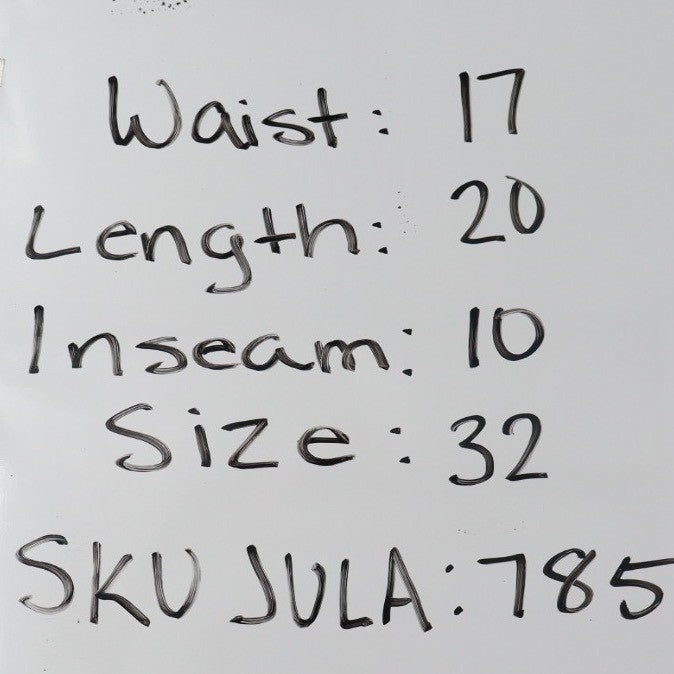 Waist: 17
Length: 20
Inseam: 10
Size: 32
SKU JULA: 785